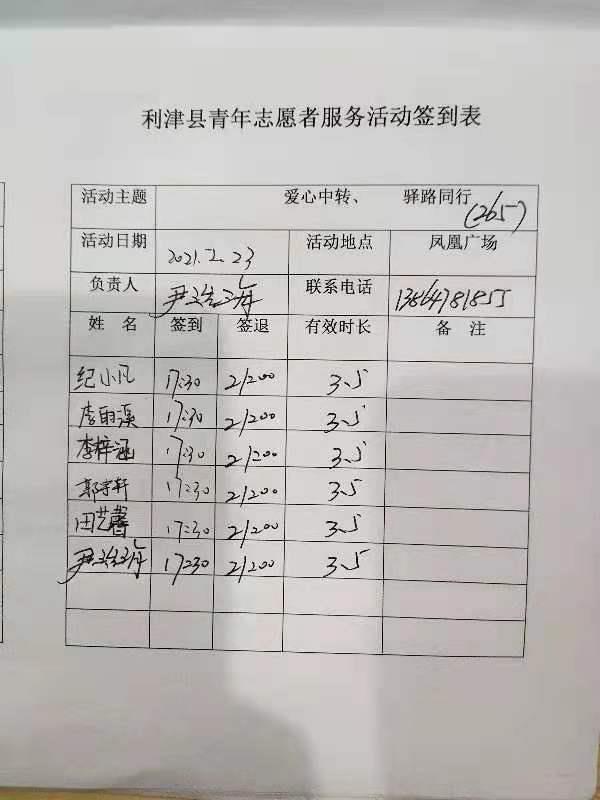 利津县青年志愿者服务活动签到表
活动主题 爱心中转、 驿路同行 (265)
活动日期 2021.2.23 活动地点 凤凰广场
负责人 联系电话 13864781855
姓名 签到 签退 有效时长 备注
纪小凡 17:30 21:00 3.5
李雨溪 17:30 21:00 3.5
李梓涵 17:30 21:00 3.5
郭宇轩 17:30 21:00 3.5
田艺馨 17:30 21:00 3.5
17:30 21:00 3.5